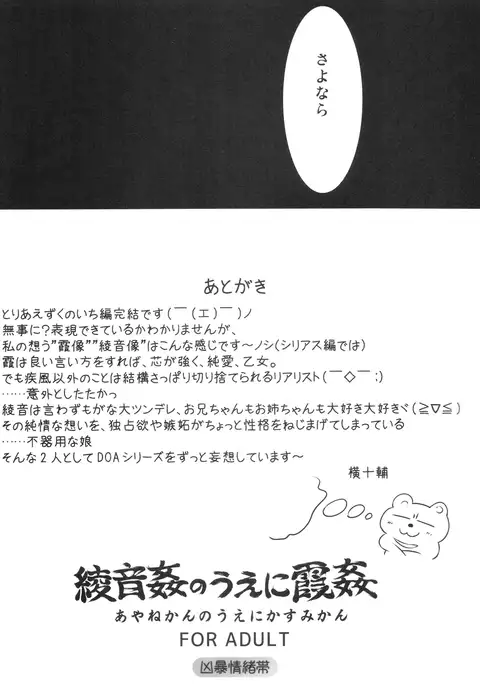 さよなら
あとがき
とりあえずくのいち編完結です(￣(エ)￣)ノ
無事に?表現できているかわかりませんが、
私の想う"霞像""綾音像"はこんな感じです~ノシ(シリアス編では)
霞は良い言い方をすれば、芯が強く、純愛、乙女。
でも疾風以外のことは結構さっぱり切り捨てられるリアリスト(￣◇￣;)
……意外としたたかっ
綾音は言わずもがな大ツンデレ、お兄ちゃんもお姉ちゃんも大好き大好きヾ(≧∇≦)
その純情な想いを、独占欲や嫉妬がちょっと性格をねじまげてしまっている
……不器用な娘
そんな2人としてDOAシリーズをずっと妄想しています~
横十輔
綾音姦のうえに霞姦
あやねかんのうえにかすみかん
FOR ADULT
凶暴情緒帯